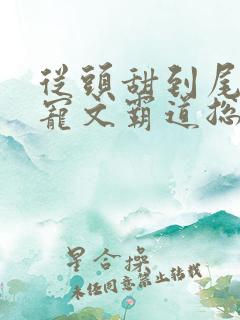 從頭甜到尾
寵文霸道總
星合操
未任同意禁止转载